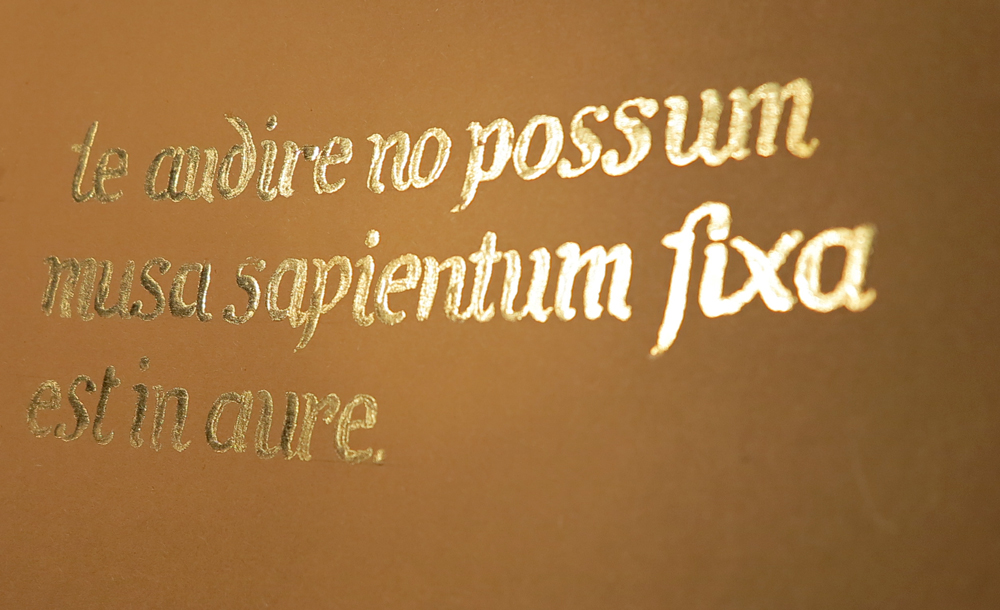 te audire no possum
musa sapientum fixa
est in aure.